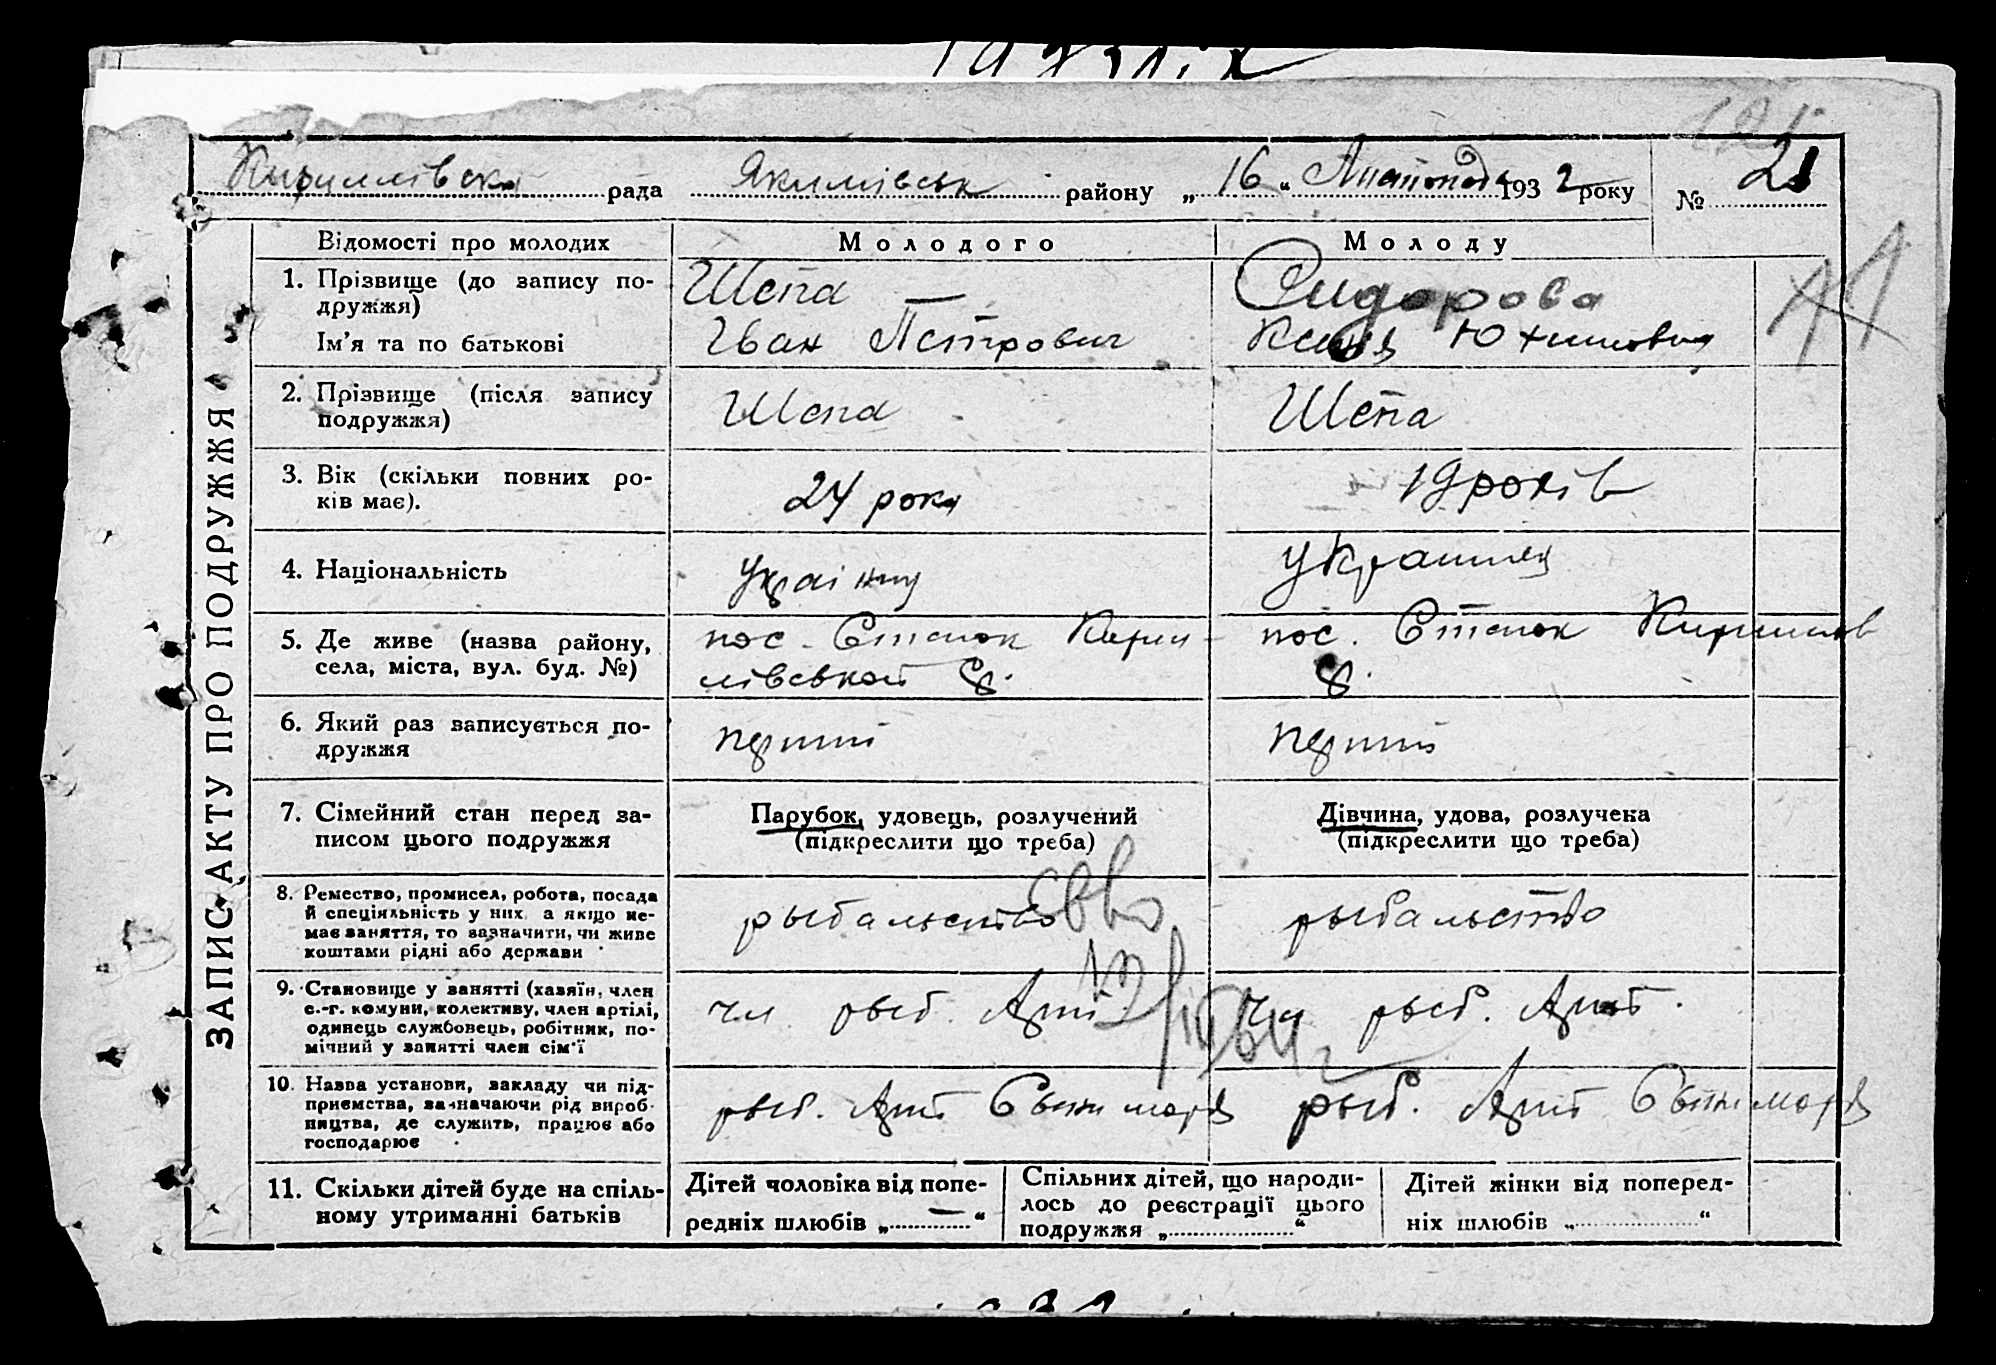 Кирилівська рада Якимівськ району „16“ Листопада 1932 року № 21
ЗАПИС АКТУ ПРО ПОДРУЖЖЯ
Відомості про молодих Молодого Молоду
1. Прізвище (до запису по-
дружжя)
Шепа Сидорова
Ім'я та по батькові Іван Петрович Ксеня Юхимовна
2. Прізвище (після запису
подружжя)
Шепа Шепа
3. Вік (скільки повних ро-
ків має).
24 рока 19 років
4. Національність
5. Де живе (назва району,
села, міста, вул. буд. №)
пос. Степок Кири-
лівской
пос. Степок Кирилов
6. Який раз записується по-
дружжя
перший перший
7. Сімейний стан перед за-
писом цього подружжя
Парубок, удовець, розлучений
(підкреслити що треба)
Дівчина, удова, розлучена
(підкреслити що треба)
8. Ремество, промисел, робота, посада
й спеціяльність у них, а якщо не-
має заняття, то зазначити, чи живе
коштами рідні або держави
рыбальство рыбальство
9. Становище у занятті (хазяїн, член
с.-г. комуни, колективу, член артілі,
одинець службовець, робітник, по-
мічний у занятті член сім'ї
чл рыб. Арт чл рыб. Арт.
10. Назва установи, закладу чи під-
приємства, зазначаючи рід вироб-
ництва, де служить, працює або
господарює
рыб. Арт рыб. Арт
11. Скільки дітей буде на спіль-
ному утриманні батьків
Дітей чоловіка від попе-
редніх шлюбів „—“
Спільних дітей, що народи-
лось до реєстрації цього
подружжя „ “
Дітей жінки від поперед-
ніх шлюбів „ “